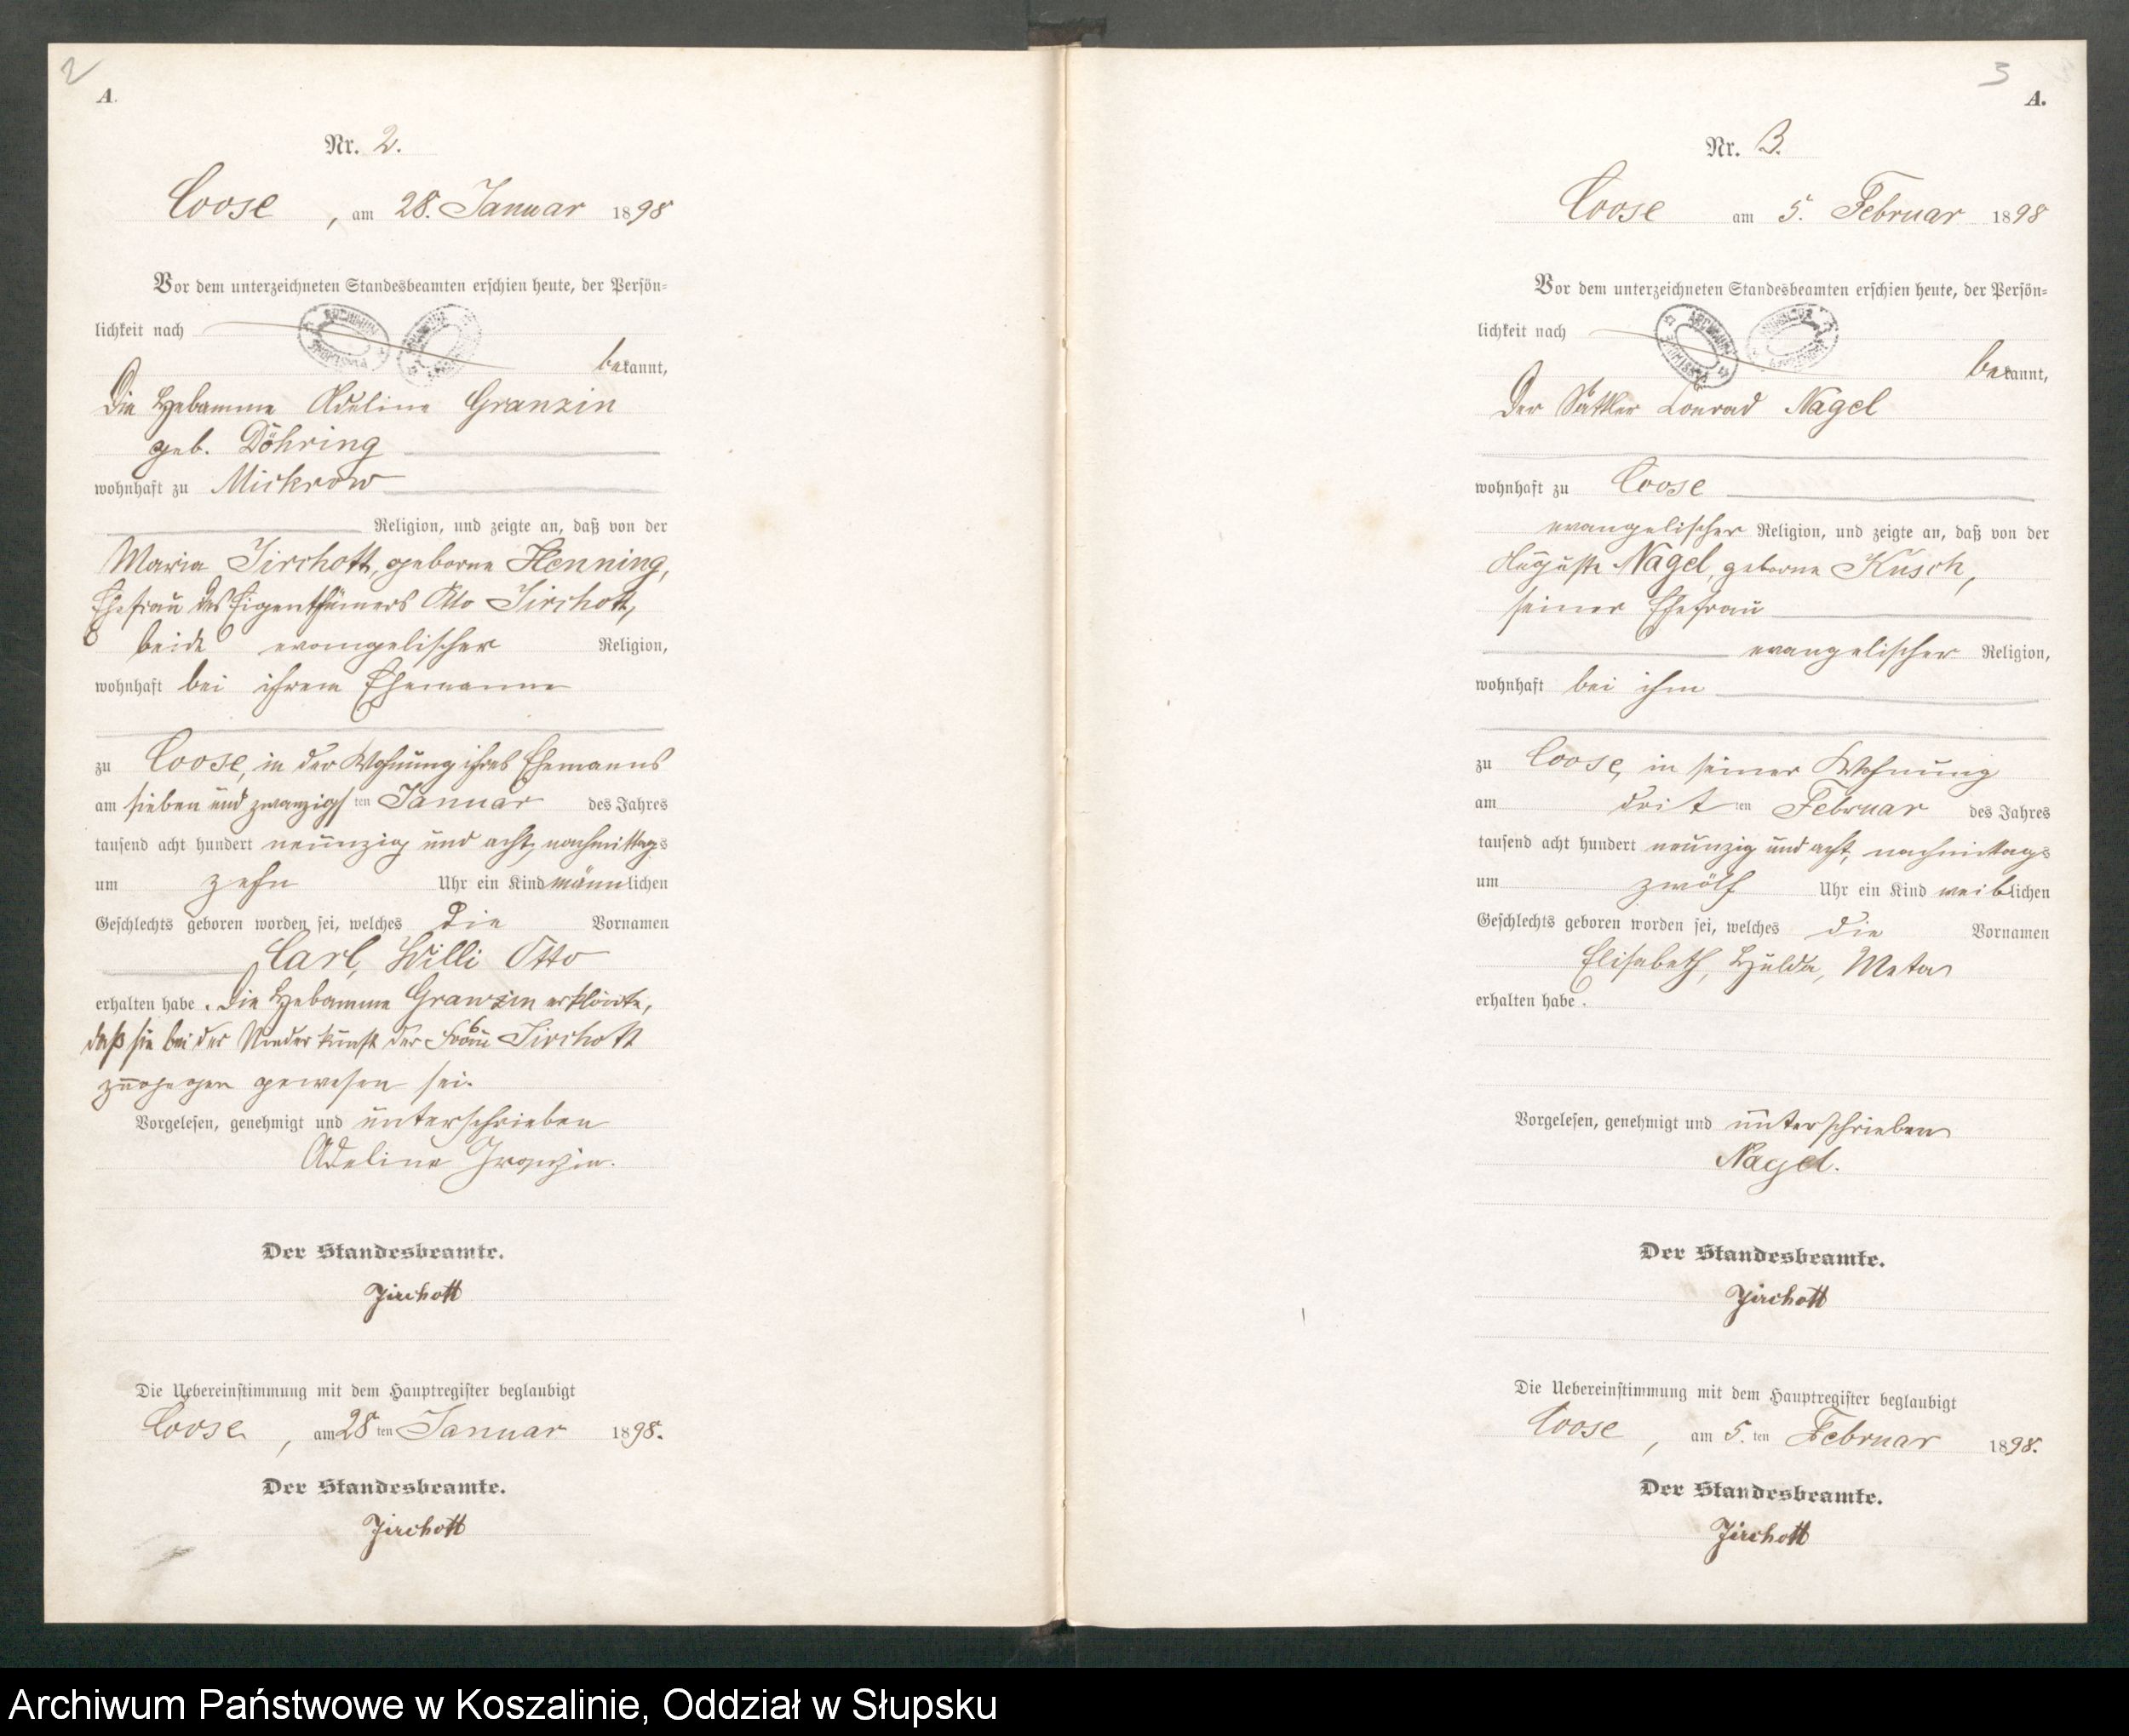 2
A.
Nr. 2.
Coose, am 28. Januar 1898
Vor dem unterzeichneten Standesbeamten erschien heute, der Persön=
lichkeit nach
bekannt,
Die Hebamme Adeline Granzin
geb. Döhring
wohnhaft zu Mickrow
Religion, und zeigte an, daß von der
Maria Jirchott, geborne Henning,
Ehefrau des Eigenthümers Otto Jirchott,
beide evangelischer Religion,
wohnhaft bei ihrem Ehemanne
zu Coose, in der Wohnung ihres Ehemanns
am sieben und zwanzigsten Januar des Jahres
tausend acht hundert neunzig und acht, nachmittags
um zehn Uhr ein Kind männlichen
Geschlechts geboren worden sei, welches die Vornamen
Carl, Willi Otto
erhalten habe. Die Hebamme Granzin erklärte,
daß sie bei der Niederkunft der Frau Jirchott
zugegen gewesen sei.
Vorgelesen, genehmigt und unterschrieben
Adeline Granzin.
Der Standesbeamte.
Jirchott
Die Uebereinstimmung mit dem Hauptregister beglaubigt
Coose, am 28ten Januar 1898.
Der Standesbeamte.
Jirchott
3
A.
Nr. 3.
Coose am 5. Februar 1898
Vor dem unterzeichneten Standesbeamten erschien heute, der Persön=
lichkeit nach
bekannt,
Der Sattler Conrad Nagel
wohnhaft zu Coose
evangelischer Religion, und zeigte an, daß von der
Auguste Nagel, geborne Kusch,
seiner Ehefrau
evangelischer Religion,
wohnhaft bei ihm
zu Coose, in seiner Wohnung
am dritten Februar des Jahres
tausend acht hundert neunzig und acht, nachmittags
um zwölf Uhr ein Kind weiblichen
Geschlechts geboren worden sei, welches die Vornamen
Elisabeth, Hulda, Meta
erhalten habe.
Vorgelesen, genehmigt und unterschrieben
Nagel.
Der Standesbeamte.
Jirchott
Die Uebereinstimmung mit dem Hauptregister beglaubigt
Coose, am 5. ten Februar 1898.
Der Standesbeamte.
Jirchott
Archiwum Państwowe w Koszalinie, Oddział w Słupsku